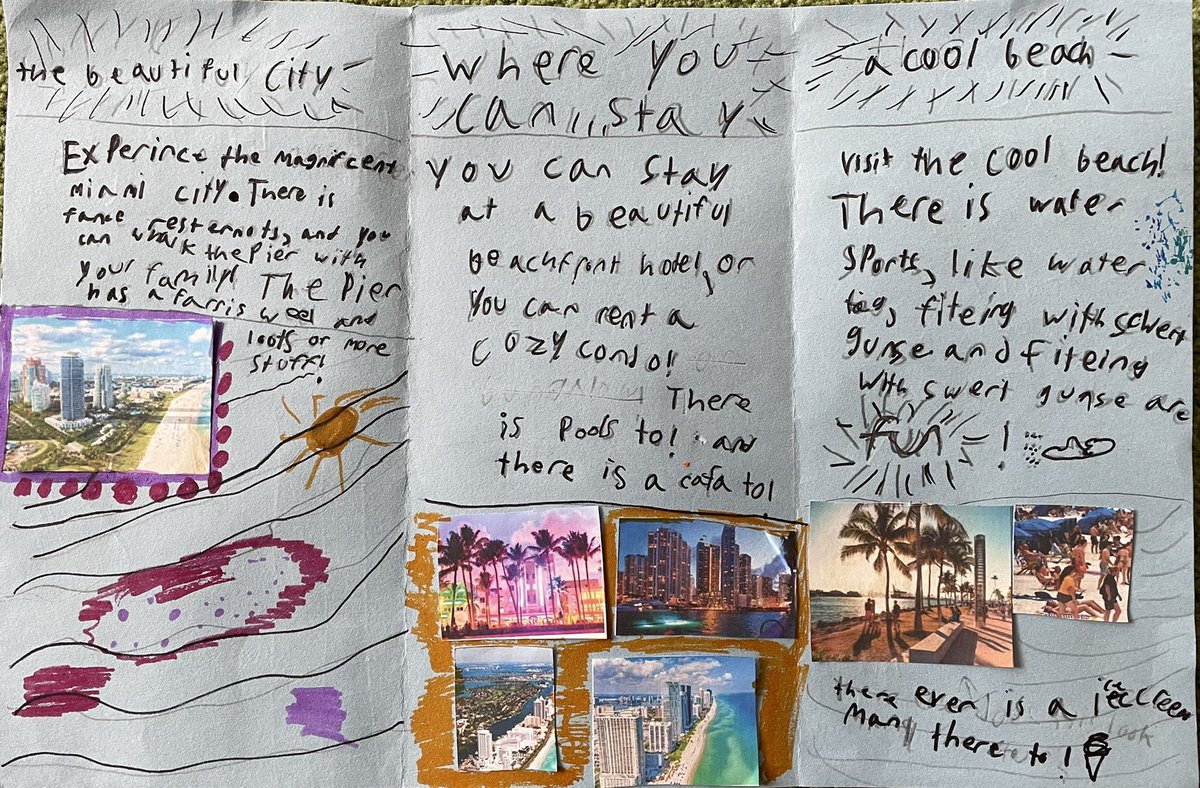 the beautiful City
Experince the Magnificent
miami city. There is
fance resternots, and you
can walk the Pier with
your family! The Pier
has a farris weel and
loots or more
stuff!
where you
can stay
you can stay
at a beautiful
beachfront hotel, or
you can rent a
cozy condo!
There
is Pools to! and
there is a cafa to!
a cool beach
visit the cool beach!
There is water
sports, like water
fiteing with scwert
gunse and fiteing
with swert gunse are
fun!
there even is a icecreem
man there to!